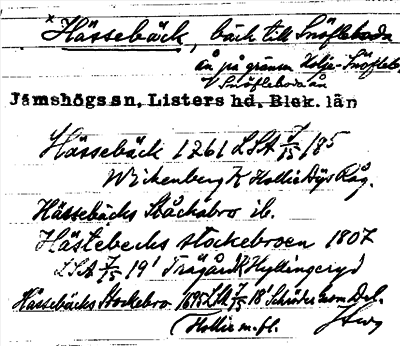 x Hässebäck, bäck till Snöfleboda
ån på gränsen Holje-Snöflebo
Snöflebodaån
Jämshögs sn, Listers hd, Blek. län
Hässebäck 1761 LSA 7/15 185
Wickenberg K Hollie Dys Råg.
Hässebäcks Ståckabro ib.
Hästebecks stockebroen 1807
LSA 7/5 19' Trägård Hyllingeryd
Hässebäcks Stockebro 1695 LSA 7/5 18'
(Hollie m.fl.